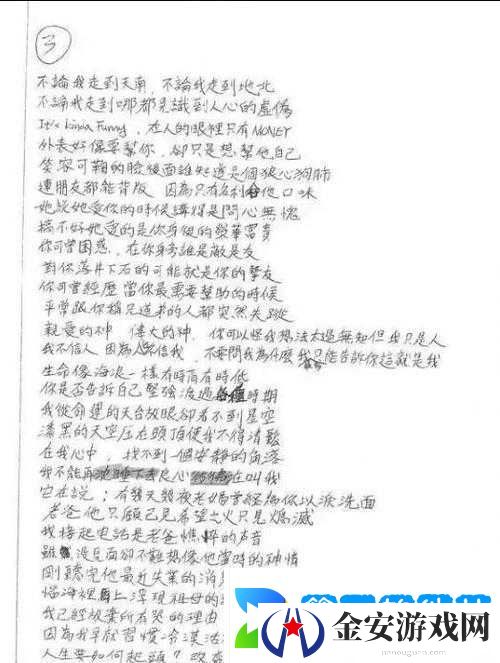 3
不論我走到天南，不論我走到地北
不論我走到哪都見識到人心的虛偽
It's kinda Funny，在人的眼裡只有MONEY
外表好像要幫你，卻只是想幫他自己
笑容可鞠的臉後面誰知道是個狼心狗肺
連朋友都能背版 因為只有名利合他口味
她說她愛你的時侯講得是問心無愧
搞不好她愛的是你身後的榮華富貴
你可曾困惑，在你身旁誰是敵是友
對你落井下石的可能就是你的摯友
你可曾經歷當你最需要幫助的時候
平常跟你稱兄道弟的人都突然失蹤
親愛的神 偉大的神，你可以怪我想法太過無知但我只是人
我不信人 因為人不信我，不要問我為什麼我只能告訴你這就是我
生命像海浪一樣有時高有時低
你是否告訴自己堅強渡過 時期
我從命運的天台放眼卻看不到星空
漆黑的天空压在頭頂使我不得清鬆
在我心中，找不到一個安靜的角落
我不能再沈睡下去良心 在叫我
它在說；有幾天幾夜老媽曾經為你以淚洗面
老爸他只顧己見希望之火只見熄滅
我接起電話是老爸憔悴的声音
雖 沒見面卻不難想像他當時的神情
剛聽完他最近失業的消
腦海裡 上浮現祖母的
我已經放棄所有哭的理由
因為我早就習慣冷漠
人生要如何起頭？改
金安游戏网